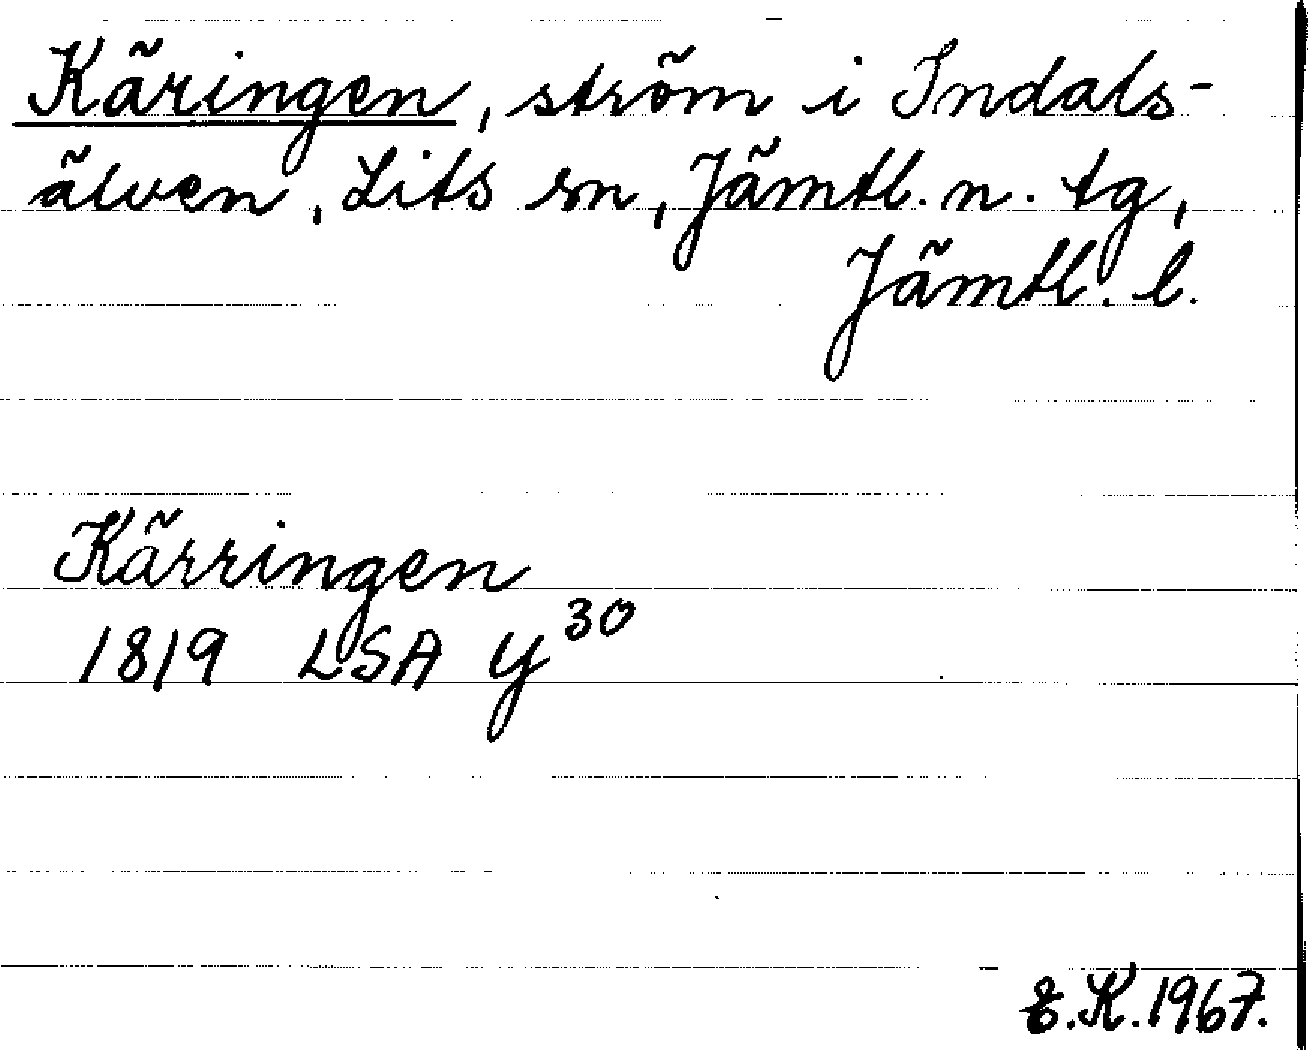 Käringen, ström i Indals-
älven, Lits sn, Jämtl. n. tg,
Jämtl. l.
Kärringen
1819 LSA Y 30
E.K. 1967.